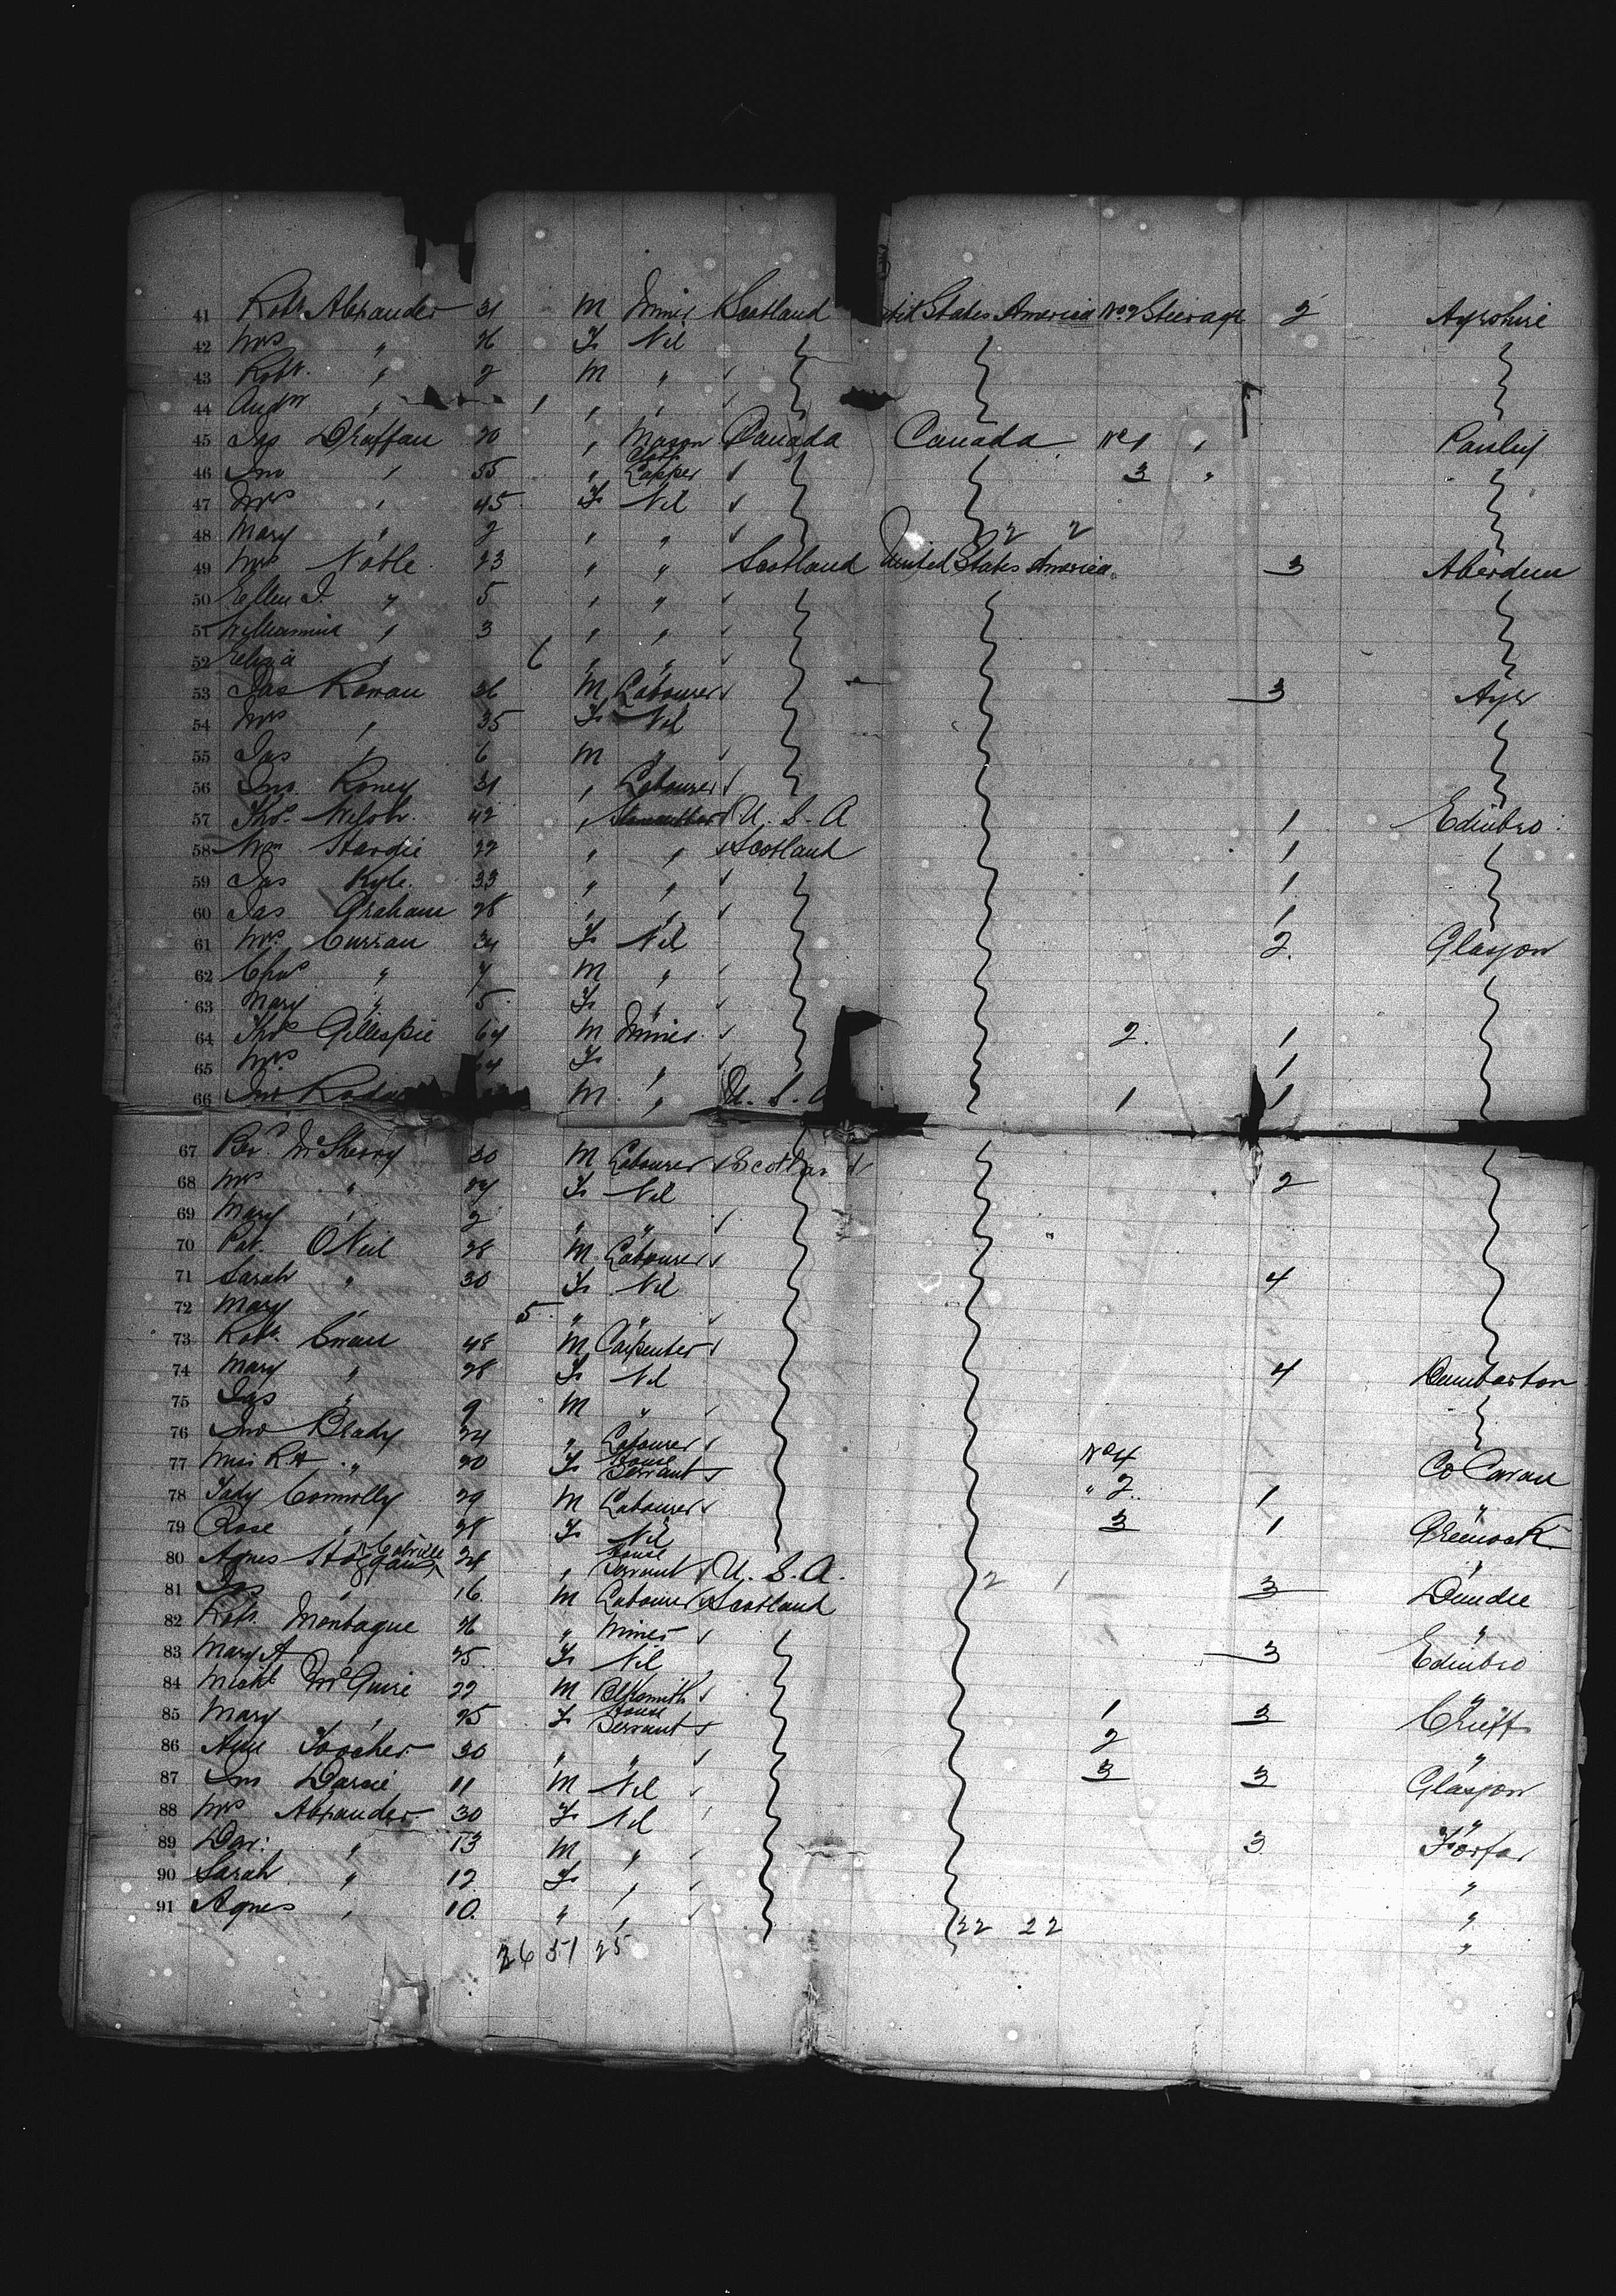 41 Robt. Alexander 31 M Miner Scotland States America No. 2 Steerage 2 Ayrshire
42 Mrs " 26 F Nil
43 Robt. " 2 M "
44 Andw " 1 " "
45 Jas Draffan 20 " Mason Canada Canada No 1 " Paisley
46 Jno " 55 " Cloth Lapper 3 " "
47 Mrs " 45 F Nil
48 Mary " 2 " " 2 2
49 Mrs Noble 23 " " Scotland United States America 3 Aberdeen
50 Ellen J. " 5 " "
51 Williamina " 3 " "
52 Eliza " 6 " "
53 Jas Rowan 36 M Labourer 3 Ayr
54 Mrs " 35 F Nil
55 Jas " 6 M "
56 Jno. Roney 31 " Labourer
57 Thos. 42 " U. S. A 1 Edinbro
58 Wm 22 " " Scotland 1
59 Jas Kyle 33 " " 1
60 Jas Graham 28 " " 1
61 Mrs. Curran 34 F Nil 2. Glasgow
62 Chas " 7 M "
63 Mary " 5 F "
64 Thos Gillespie 64 M Miner 2. 1
65 Mrs. F " 1
66 Jno M " U. S. 1 1
67 McSherry 30 M Labourer Scotland
68 Mrs " 27 F Nil 2
69 Mary " 2 " "
70 Pat. ONeil 28 M Labourer
71 Sarah " 30 F Nil 4
72 Mary " 5 " "
73 Robt. 48 M Carpenter
74 Mary " 28 F Nil 4 Dumbarton
75 Jas " 9 M "
76 Jno Brady 24 " Labourer
77 Miss R A " 20 F House Servant No 4 Co Cavan
78 Connolly 29 M Labourer " 2 1 "
79 Rose " 28 F Nil 3 1 Greenock
80 Agnes 24 " House Servant U. S. A. 2 1 "
81 Jas " 16 M Labourer Scotland 3 Dundee
82 Robt. Montague 26 " Miner "
83 Mary A " 25 F Nil 3 Edinbro
84 Michl McGuire 22 M Blksmith "
85 Mary " 25 F House Servant 1 3 Crieff
86 30 " " 2 "
87 Jno 11 M Nil 3 3 Glasgow
88 Mrs Alexander 30 F Nil "
89 Dav: " 13 M " 3 Forfar
90 Sarah " 12 F " "
91 Agnes " 10 " " 22 22 "
26 51 25 "